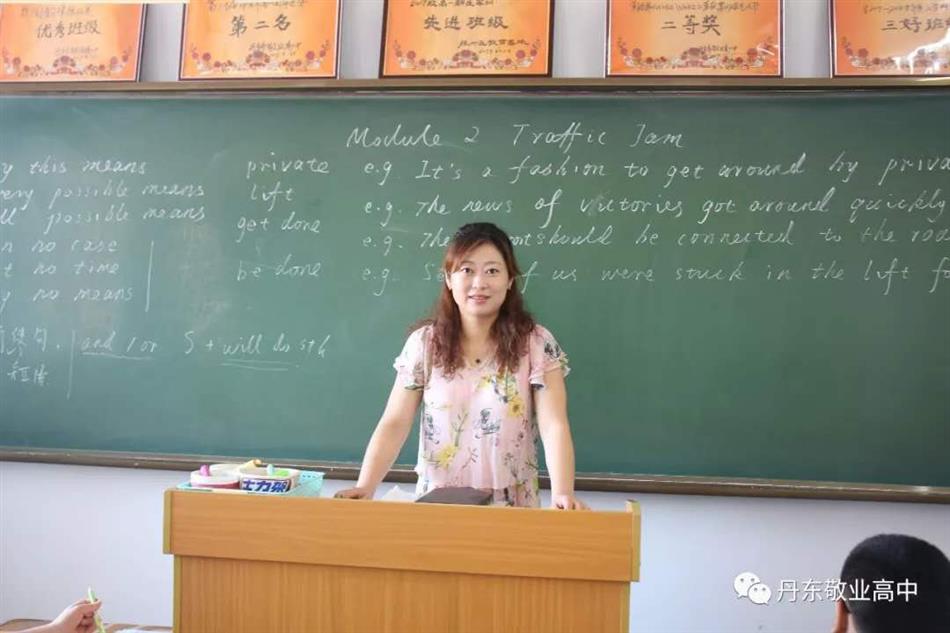 优秀班级
第二名
先进班级
二等奖
三好班
Module 2 Traffic Jam
y this means
ery possible means
ll possible means
n no case
t no time
y no means
private
lift
get done
be done
e.g. It's a fashion to get around by priva
e.g. The news of victories got around quickly
e.g. The should be connected to the roa
e.g. So f us were stuck in the lift f
and / or S + will do sth
士力架
丹东敬业高中